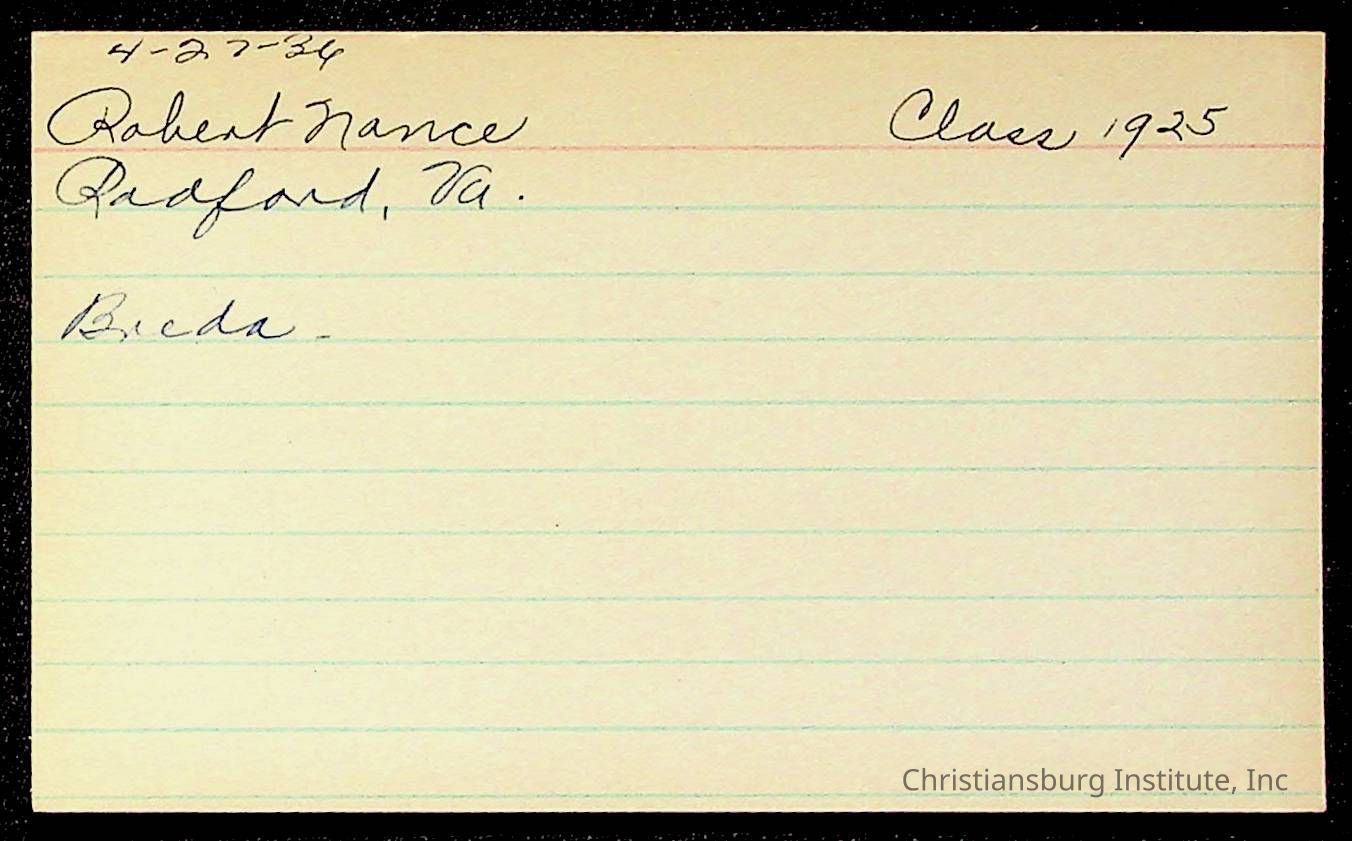 4-27-36
Robert Nance Class 1925
Radford, Va.
Breda -
Christiansburg Institute, Inc